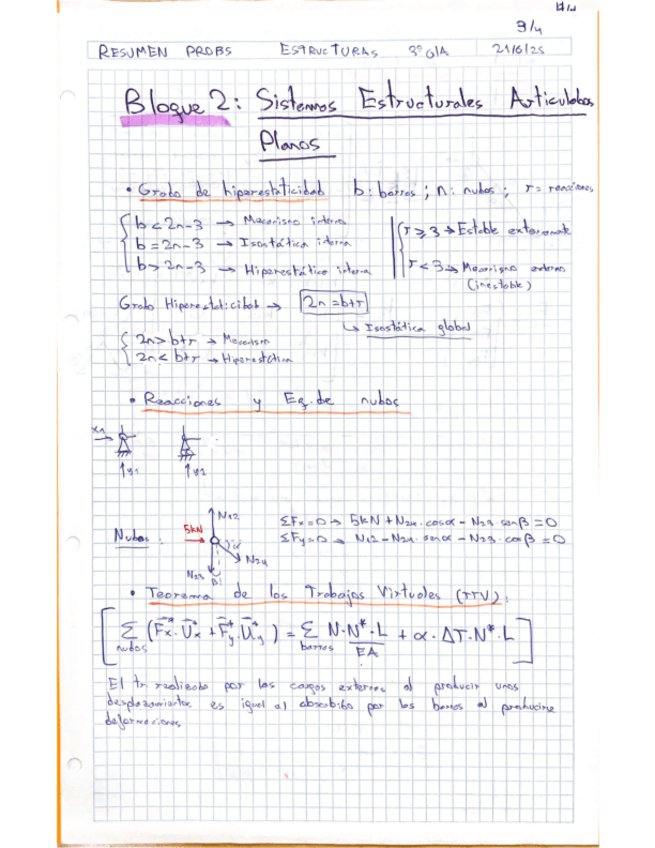 3/4
RESUMEN PROBS ESTRUCTURAS 3º GIA 21/6/25
Bloque 2: Sistemas Estructurales Articulados
Planos
• Grado de hiperestaticidad b: barras; n: nudos; r = reacciones
b < 2n-3 → Mecanismo interno
b = 2n-3 → Isostática interna
b > 2n-3 → Hiperestático interna
r ≥ 3 → Estable externamente
r < 3 → Mecanismo externo
(inestable)
Grado Hiperestaticidad → 2n = b+r
↳ Isostática global
2n > b+r → Mecanismo
2n < b+r → Hiperestática
• Reacciones y Eq. de nudos
x1
↑y1 ↑y2
Nudos: 5kN N12 α N24 N23 β
ΣFx=0 → 5kN + N24·cosα - N23·senβ = 0
ΣFy=0 → N12 - N24·senα - N23·cosβ = 0
• Teorema de los Trabajos Virtuales (TTV):
[Σ nudos (Fx*·Ux + Fy*·Uy) = Σ barras N·N*·L / EA + α·ΔT·N*·L]
El tr realizado por las cargas externas al producir unos
desplazamientos es igual al absorbido por las barras al producirse
deformaciones